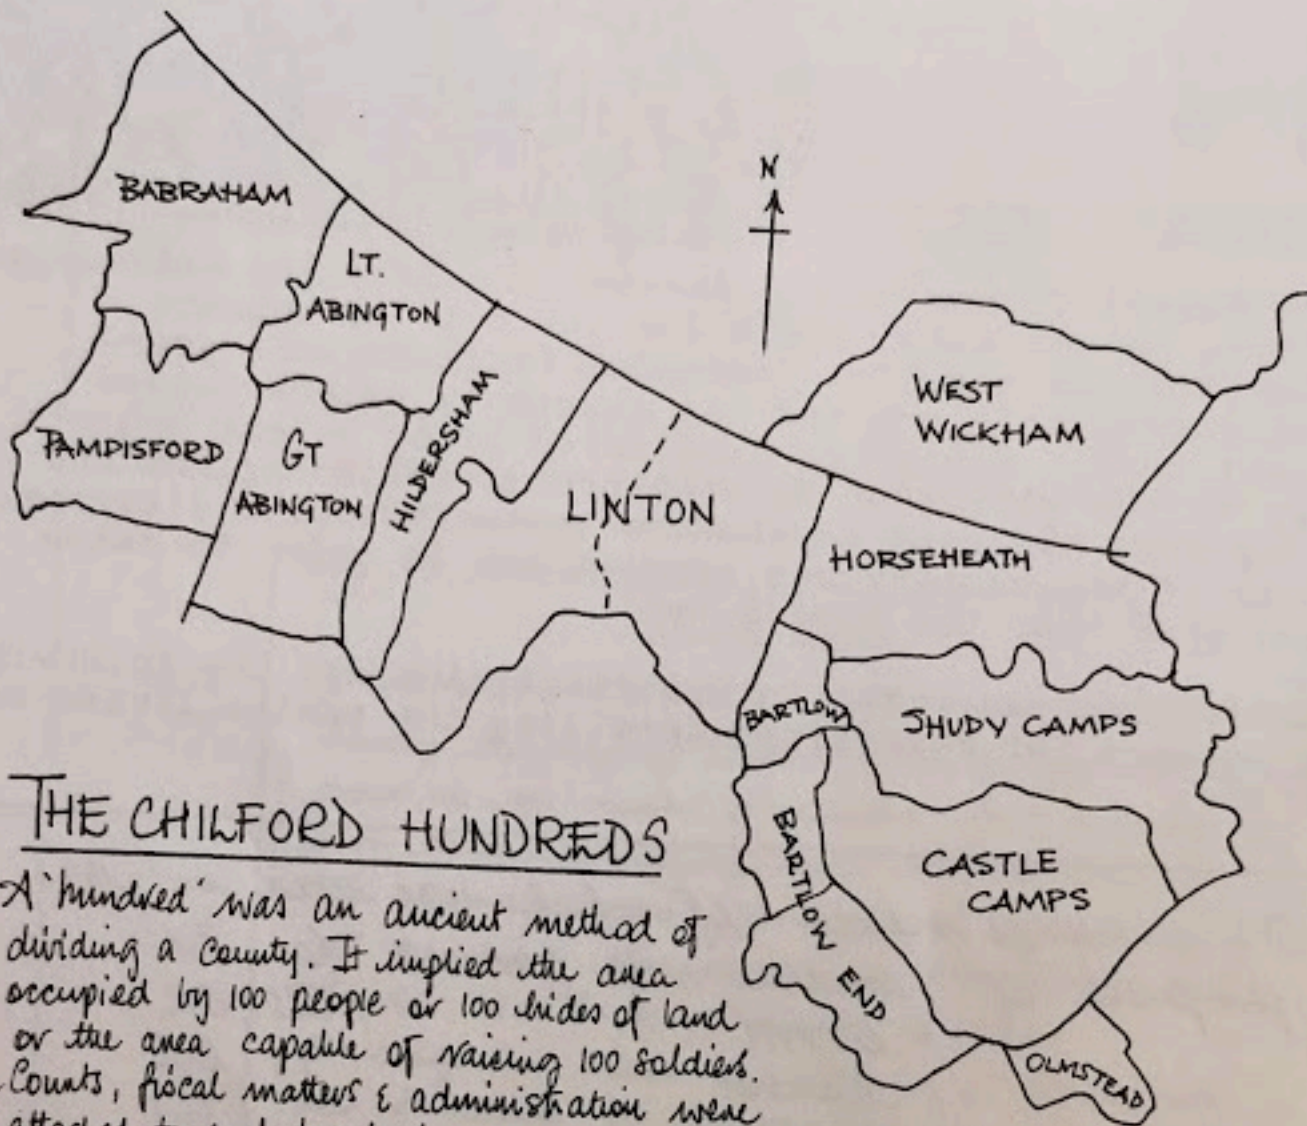 BABRAHAM
N
LT.
ABINGTON
WEST
WICKHAM
PAMPISFORD
GT
ABINGTON
HILDERSHAM
LINTON
HORSEHEATH
BARTLOW
SHUDY CAMPS
BARTLOW END
CASTLE
CAMPS
OLMSTEAD
THE CHILFORD HUNDREDS
A 'hundred' was an ancient method of
dividing a County. It implied the area
occupied by 100 people or 100 hides of land
or the area capable of raising 100 soldiers.
Courts, fiscal matters & administration were